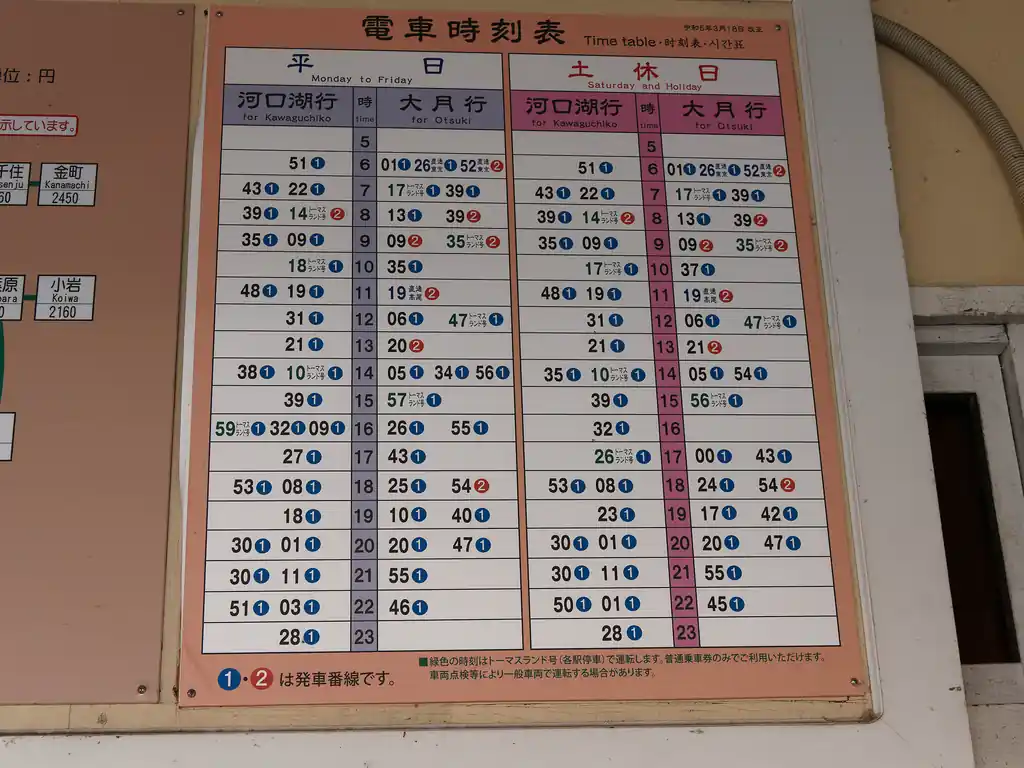 電車時刻表 Time table・時刻表・시간표 令和5年3月18日 改正
平日 土休日
Monday to Friday Saturday and Holiday
河口湖行 時 大月行 河口湖行 時 大月行
for Kawaguchiko time for Otsuki for Kawaguchiko time for Otsuki
5 5
51① 6 01① 26直通東京① 52直通東京② 51① 6 01① 26直通東京① 52直通東京②
43① 22① 7 17トーマスランド号① 39① 43① 22① 7 17トーマスランド号① 39①
39① 14トーマスランド号② 8 13① 39② 39① 14トーマスランド号② 8 13① 39②
35① 09① 9 09② 35トーマスランド号② 35① 09① 9 09② 35トーマスランド号②
18トーマスランド号① 10 35① 17トーマスランド号① 10 37①
48① 19① 11 19直通高尾② 48① 19① 11 19直通高尾②
31① 12 06① 47トーマスランド号① 31① 12 06① 47トーマスランド号①
21① 13 20② 21① 13 21②
38① 10トーマスランド号① 14 05① 34① 56① 35① 10トーマスランド号① 14 05① 54①
39① 15 57トーマスランド号① 39① 15 56トーマスランド号①
59トーマスランド号① 32① 09① 16 26① 55① 32① 16
27① 17 43① 26トーマスランド号① 17 00① 43①
53① 08① 18 25① 54② 53① 08① 18 24① 54②
18① 19 10① 40① 23① 19 17① 42①
30① 01① 20 20① 47① 30① 01① 20 20① 47①
30① 11① 21 55① 30① 11① 21 55①
51① 03① 22 46① 50① 01① 22 45①
28① 23 28① 23
①・②は発車番線です。
■緑色の時刻はトーマスランド号(各駅停車)で運転します。普通乗車券のみでご利用いただけます。
車両点検等により一般車両で運転する場合があります。
位:円
示しています。
千住 金町
senju Kanamachi
60 2450
原 小岩
bara Koiwa
0 2160